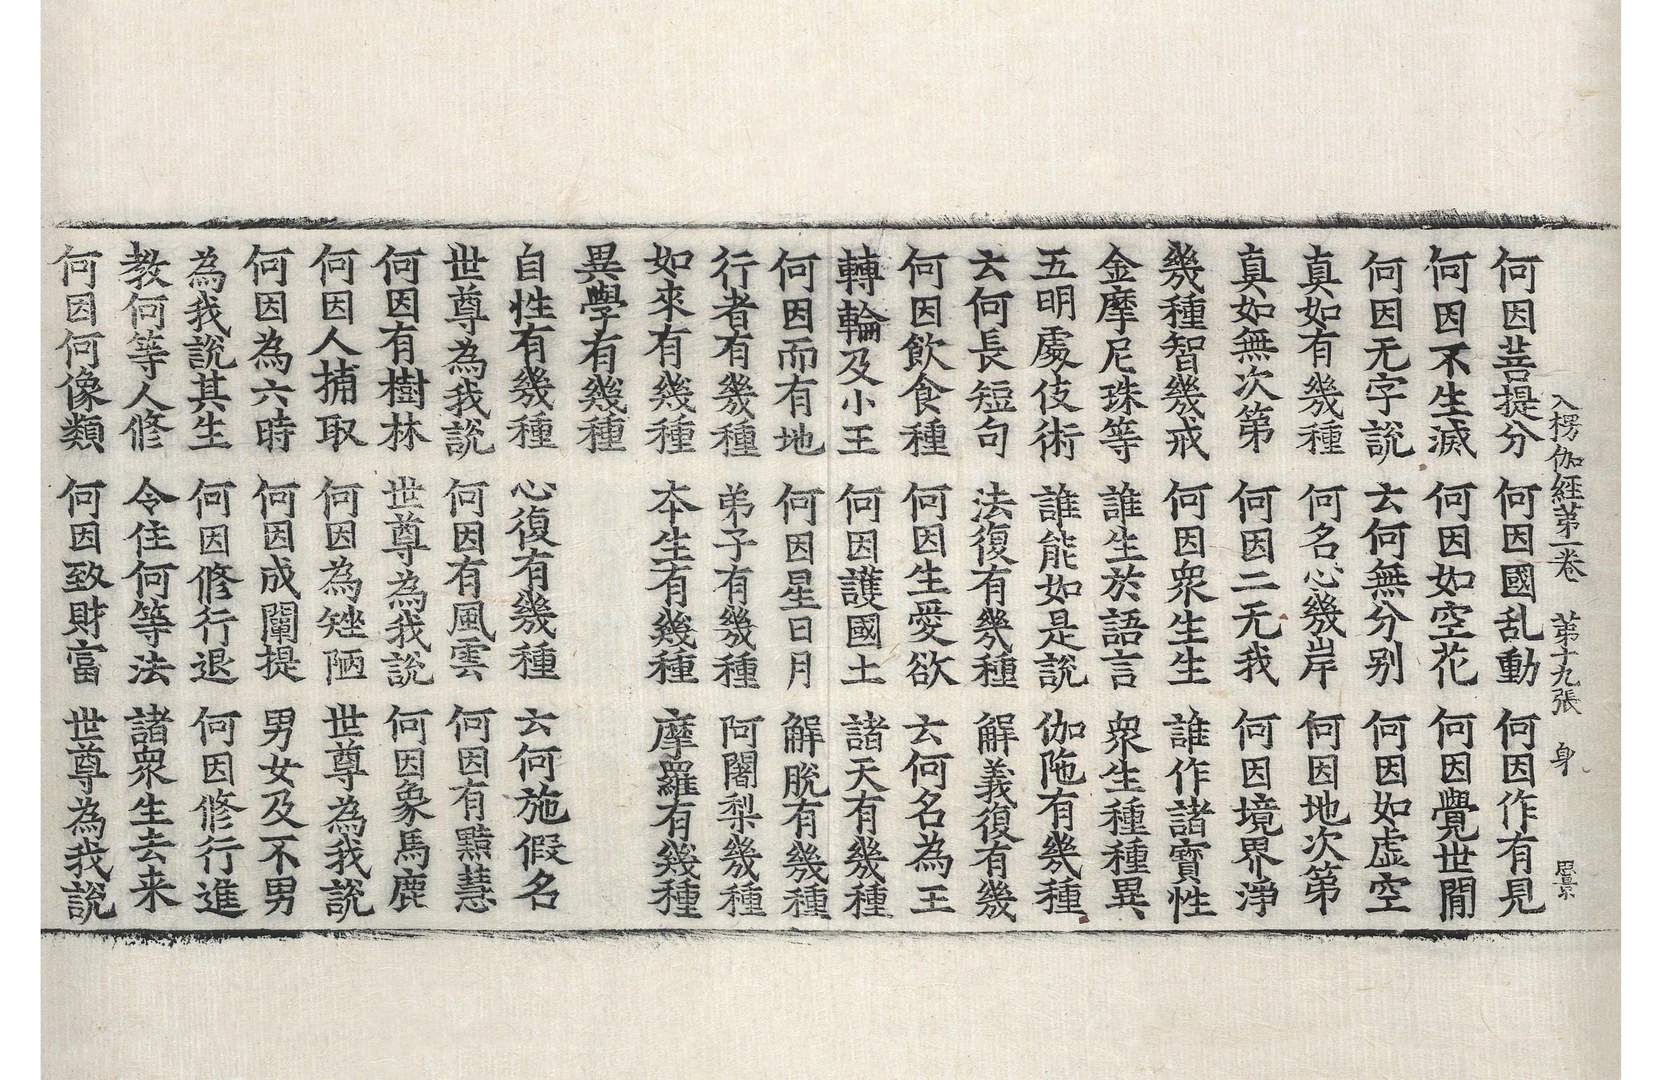 入楞伽經第一卷　第十九張　身
何因菩提分　何因國乱動　何因作有見
何因不生滅　何因如空花　何因覺世間
何因无字說　云何無分别　何因如虛空
真如有幾種　何名心幾岸　何因地次第
真如無次第　何因二无我　何因境界淨
幾種智幾戒　何因衆生生　誰作諸寶性
金摩尼珠等　誰生於語言　衆生種種異
五明處伎術　誰能如是說　伽陁有幾種
云何長短句　法復有幾種　解義復有幾
何因飲食種　何因生愛欲　云何名為王
轉輪及小王　何因護國土　諸天有幾種
何因而有地　何因星日月　解脫有幾種
行者有幾種　弟子有幾種　阿闍梨幾種
如來有幾種　本生有幾種　摩羅有幾種
異學有幾種
自性有幾種　心復有幾種　云何施假名
世尊為我說　何因有風雲　何因有黠慧
何因有樹林　世尊為我說　何因象馬鹿
何因人捕取　何因為矬陋　世尊為我說
何因為六時　何因成闡提　男女及不男
為我說其生　何因修行退　何因修行進
教何等人修　令住何等法　諸衆生去来
何因何像類　何因致財富　世尊為我說